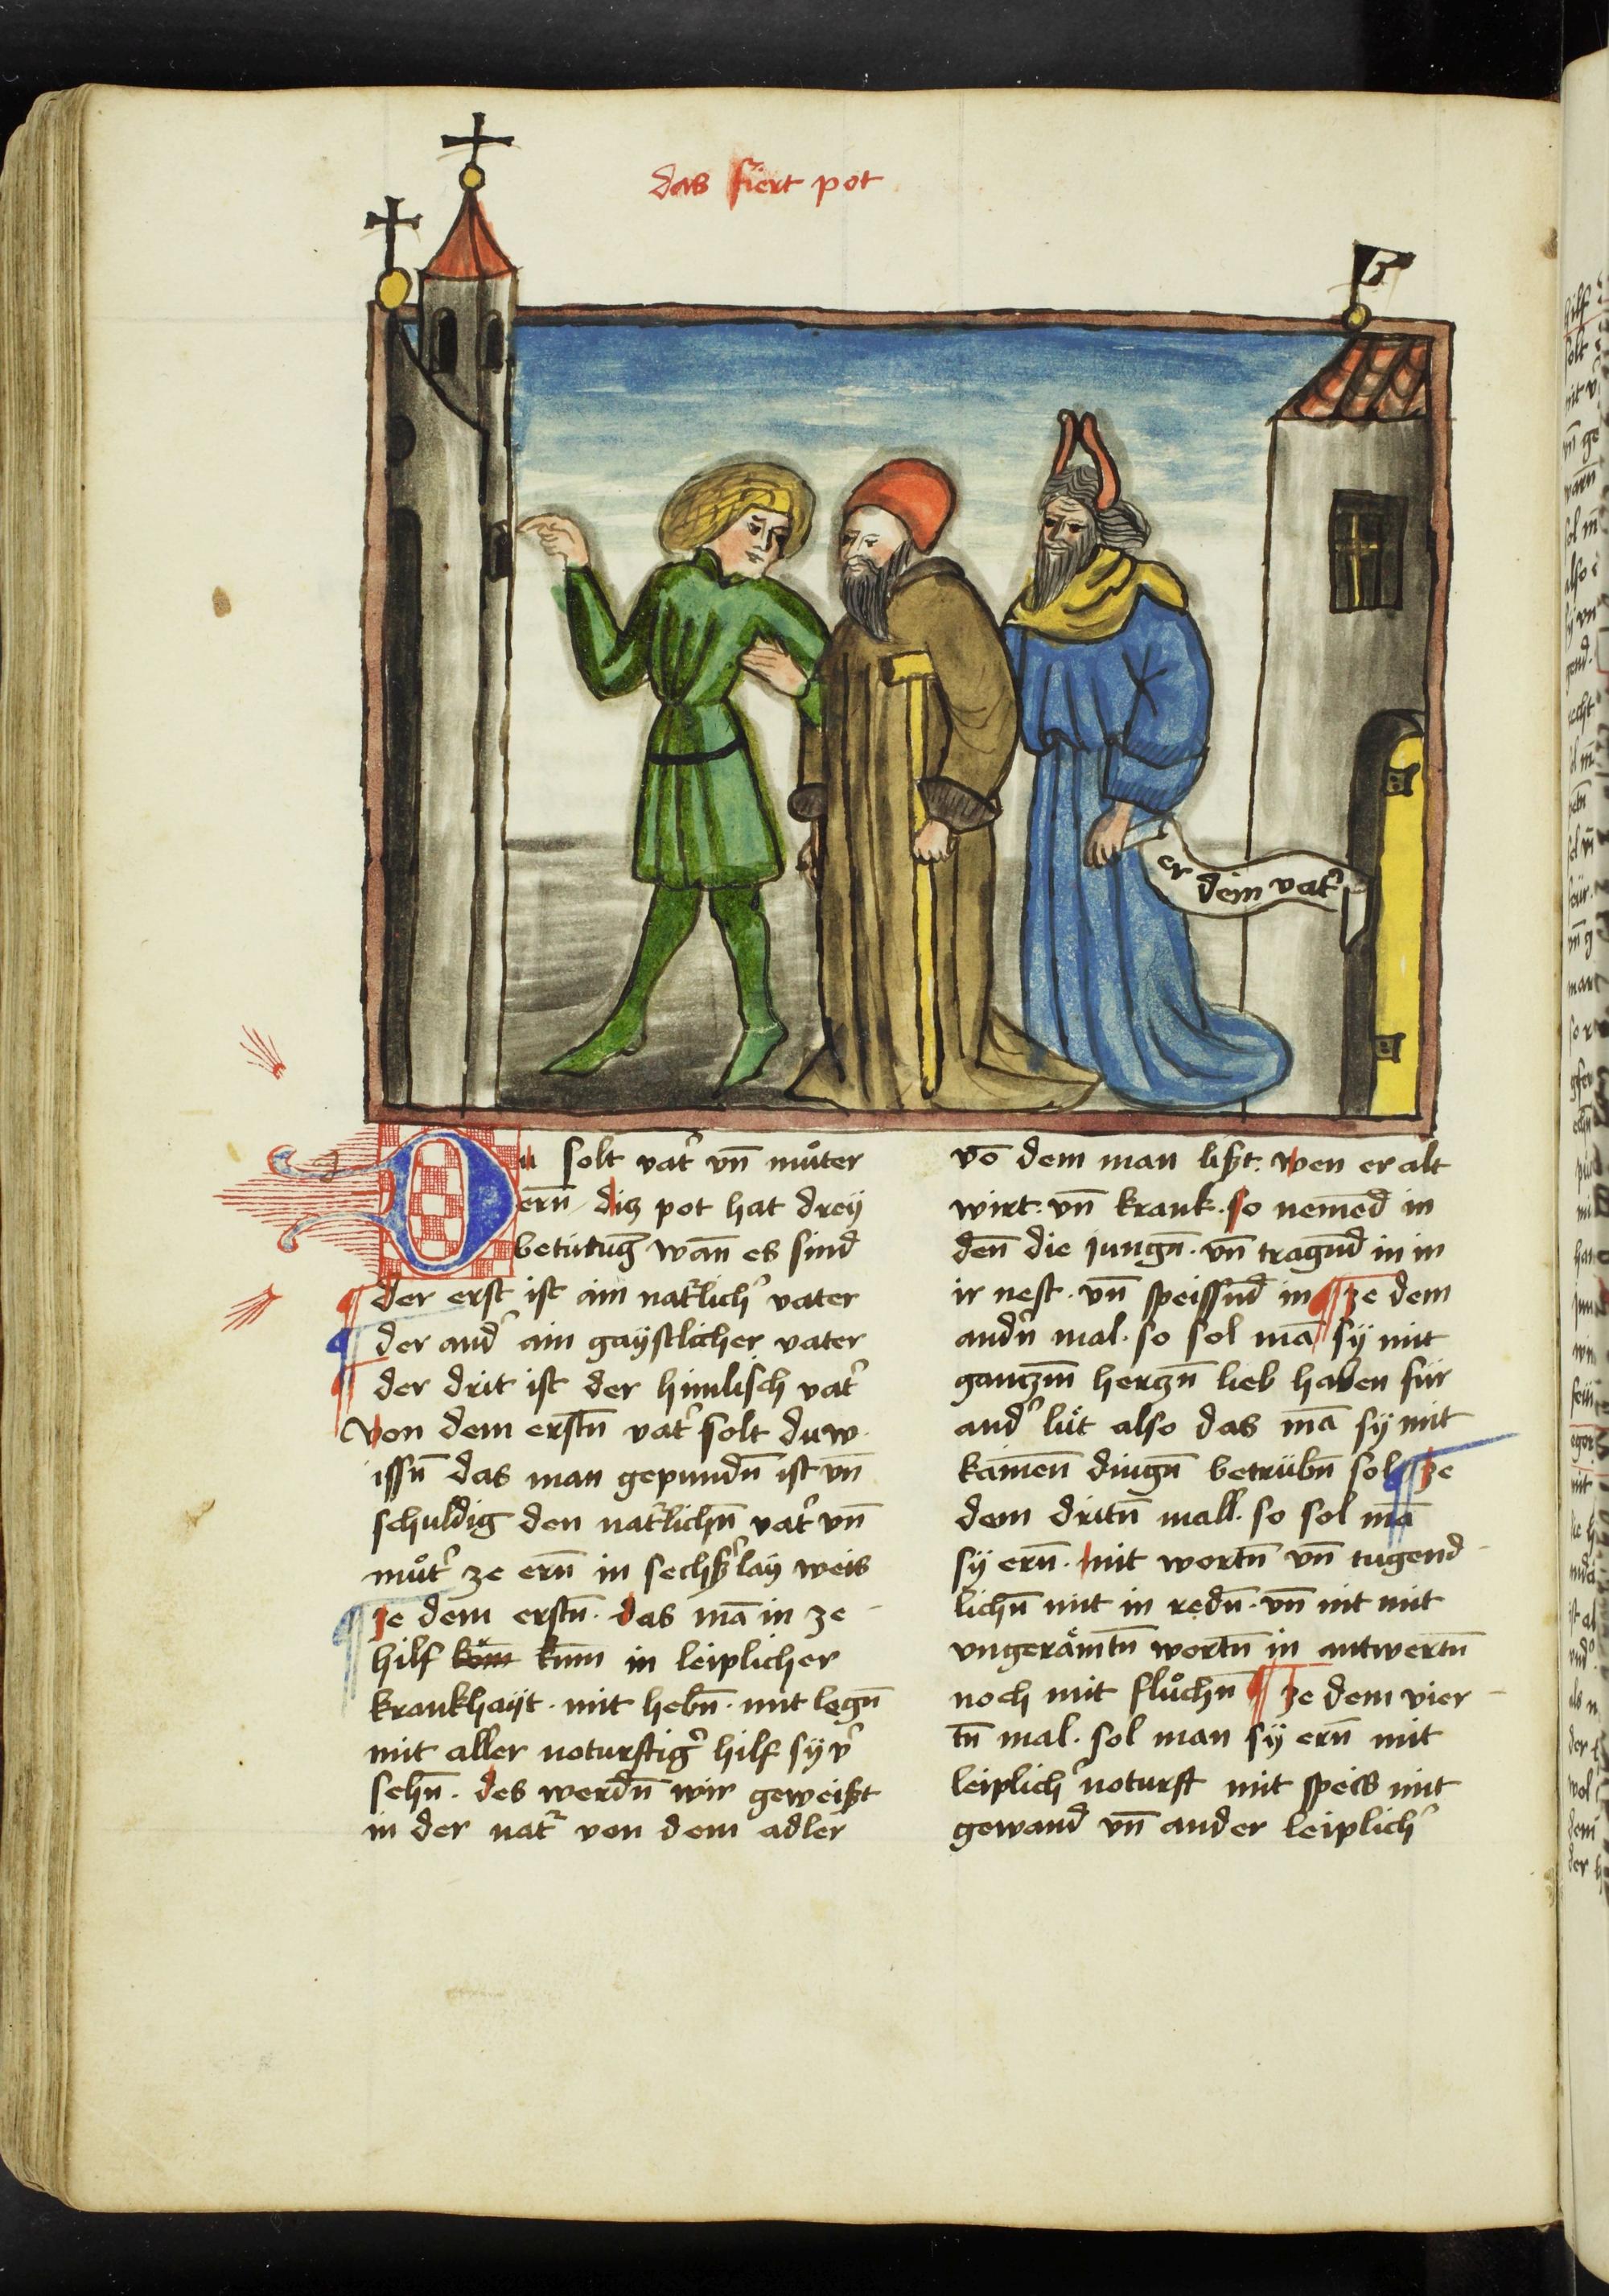 das fiert pot
er dein vat̉
Du solt vat̉ vn̄ můter
ern̄ diz pot hat drey
betütuḡ wan̄ es sind
¶ der erst ist ain nat̉lich̉ vater
¶ der and̉ ain gaystlicher vater
¶ der drit ist der himlisch vat̉
Von dem erstn̄ vat̉ solt du w
issn̄ das man gepundn̄ ist vn̄
schuldig den nat̉lichn̄ vat̉ vn̄
můt̉ ze ern̄ in sechß̉lay weis
¶ ze dem erstn̄. das mā in ze
hilf kom̄ kum̄ in leiplicher
krankhayt. mit hebn̄. mit legn̄
mit aller noturftig̉ hilf sy v̉
sehn̄. des werdn̄ wir geweißt
in der nat̉ von dem adler
vō dem man lißt. wen er alt
wirt. vn̄ krank. so nemēd in
den̄ die jungn̄. vn̄ tragn̄d in in
ir nest. vn̄ speissn̄d in ¶ ze dem
andn̄ mal. so sol mā sy mit
ganczm̄ herczn̄ lieb haben für
and̉ lüt also das mā sy mit
kainen̄ dingn̄ betrübn̄ sol ¶ ze
dem dritn̄ mall. so sol mā
sy ern̄. mit wortn̄ vn̄ tugend
lichn̄ mit in redn̄. vn̄ nit mit
vngerämtn̄ wortn̄ in antwertn̄
noch mit flůchn̄ ¶ ze dem vier
tn̄ mal. sol man sy ern̄ mit
leiplich̉ noturft mit speis mit
gewand vn̄ ander leiplich̉